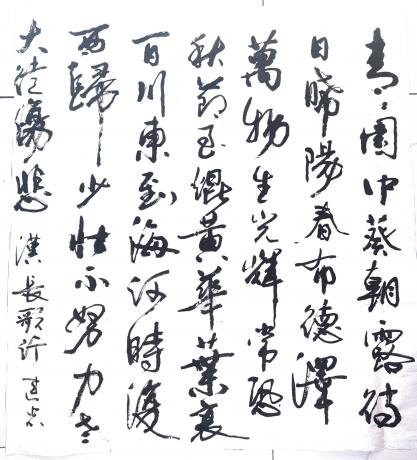 青々園中葵朝露待
日晞陽春布德澤
萬物生光輝常恐
秋節至焜黃華葉衰
百川東到海何時復
西歸少壯不努力老
大徒傷悲 漢長歌行